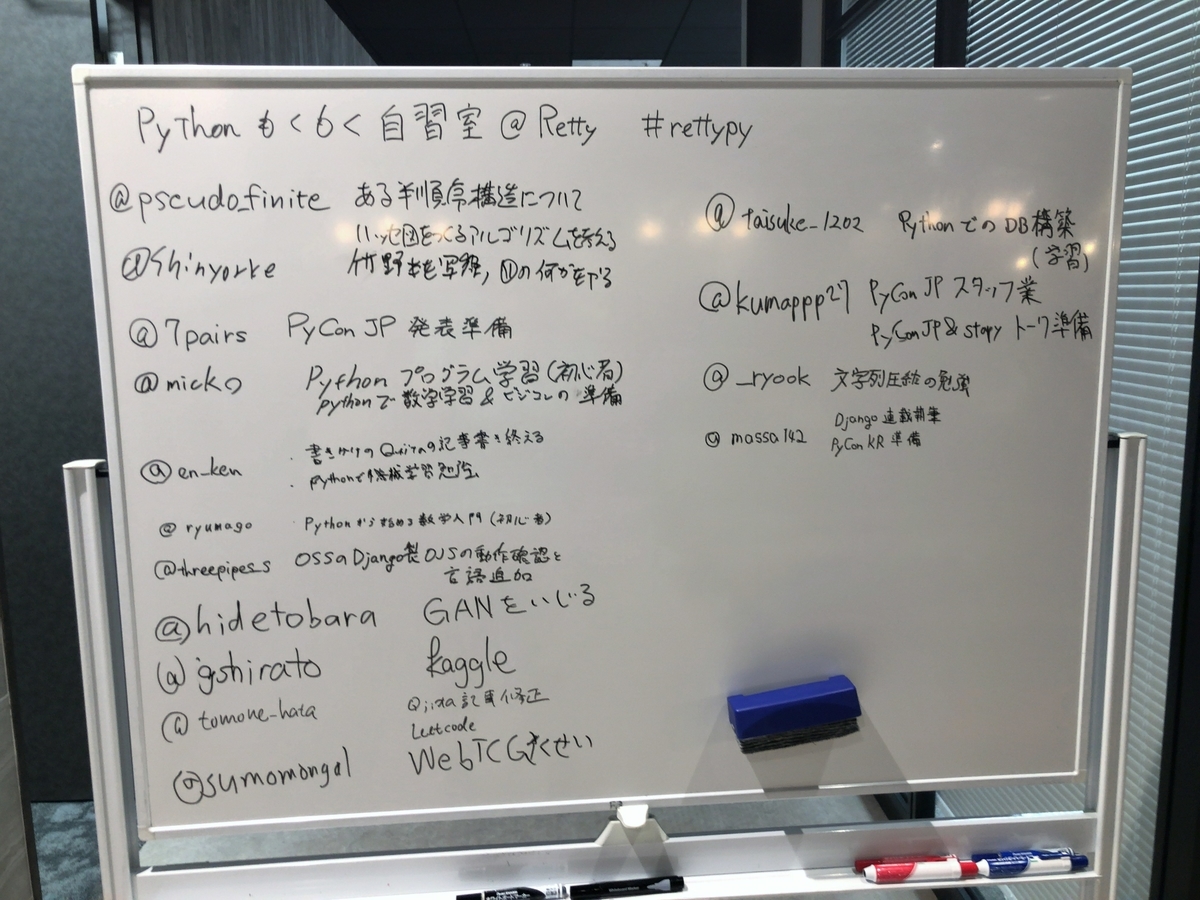 Python もくもく自習室 @ Retty #rettypy
@pseudofinite ある半順序構造について
ハッセ図をつくるアルゴリズムを考える
@Shinyorke 竹野 の何かをやる
@7pairs PyCon JP 発表準備
@micko Python プログラム学習 (初心者)
pythonで数学学習 & ビジコンの準備
@en_ken ・書きかけのQiitaの記事書き終える
・pythonで機械学習勉強
@ryumago Pythonから始める数学入門 (初心者)
@threepipes_s OSSのDjango製OJSの動作確認と
言語追加
@hidetobara GANをいじる
@gshirato kaggle
@tomone_hata Qiita記事修正
Leetcode
@sumomongal WebTCGさくせい
@taisuke_1202 PythonでのDB構築
(学習)
@kumappp27 PyCon JP スタッフ業
PyCon JP & stapy トーク準備
@_ryook 文字列圧縮の勉強
@massa142 Django 連載執筆
PyCon KR 準備